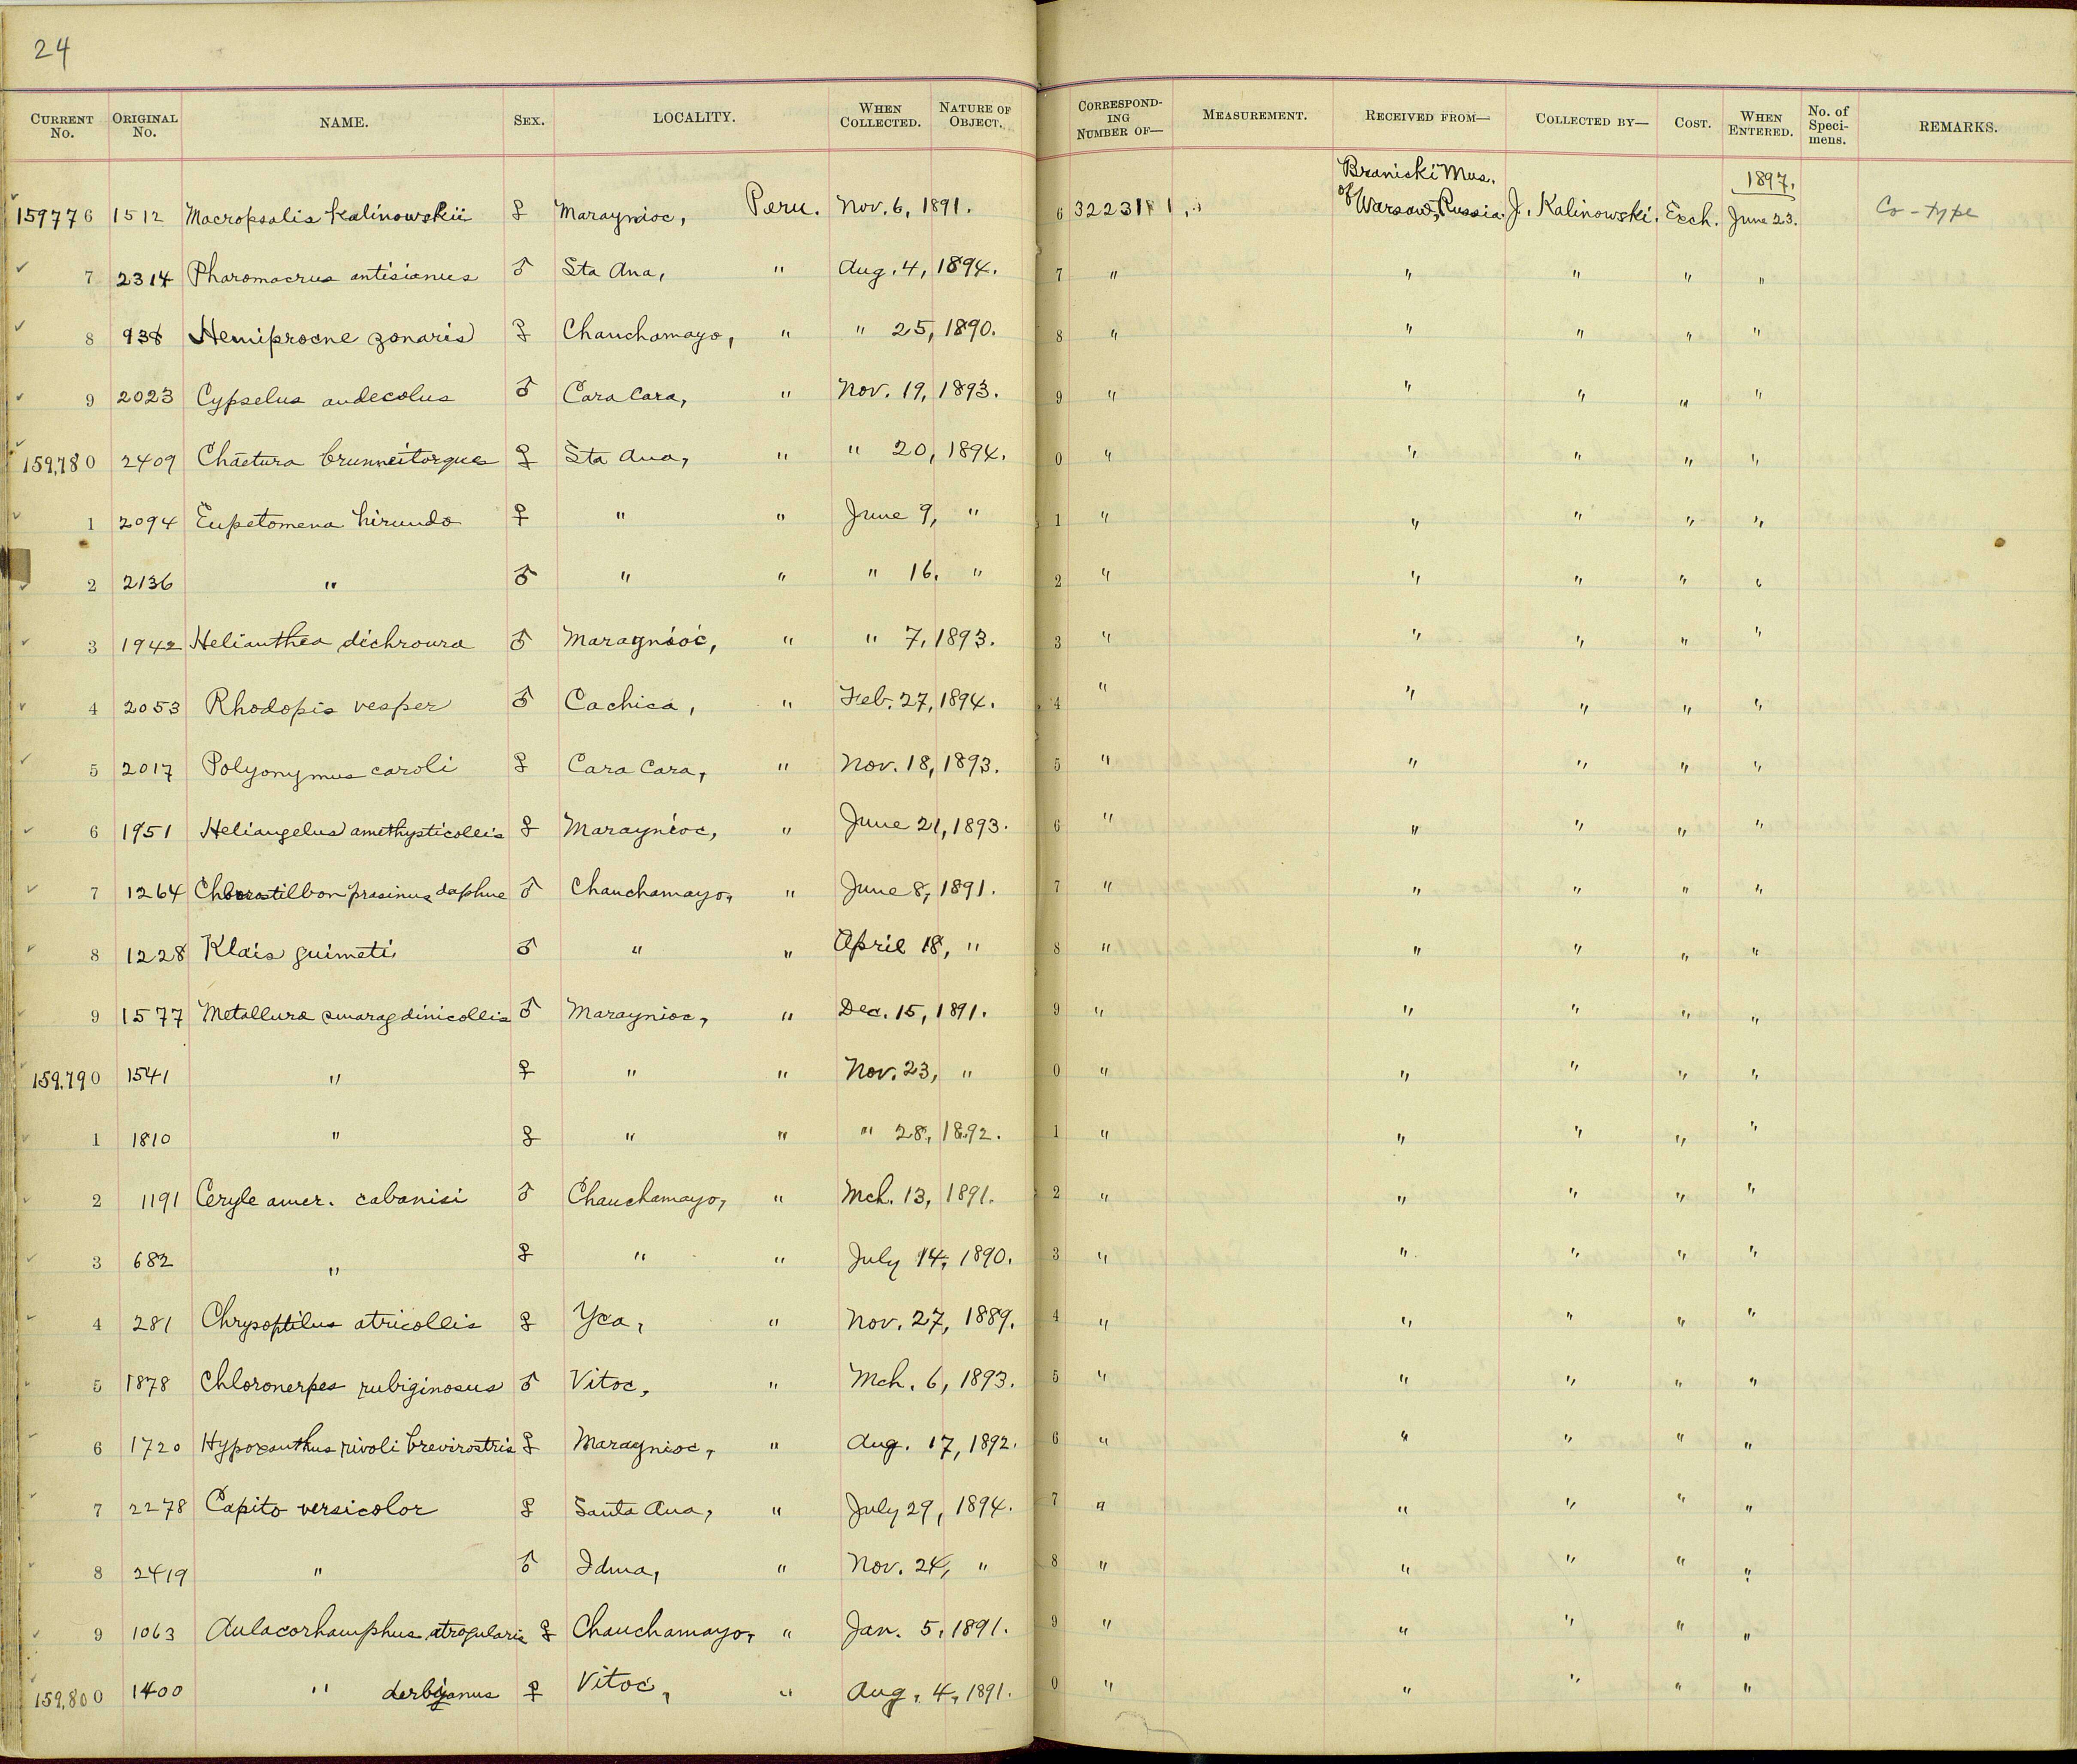 24
CURRENT No. ORIGINAL No. NAME. SEX. LOCALITY. WHEN COLLECTED. NATURE OF OBJECT. CORRESPONDING NUMBER OF— MEASUREMENT. RECEIVED FROM— COLLECTED BY— COST. WHEN ENTERED. No. of Specimens. REMARKS.
Branicki Mus. 1897.
159776 1512 Macropsalis kalinowskii ♀ Maraynioc, Peru. Nov. 6, 1891. 6 32231 of Warsaw, Russia. J. Kalinowski. Exch. June 23. Co-type
7 2314 Pharomacrus antisianus ♂ Sta Ana, " Aug. 4, 1894. 7 " " " " "
8 938 Hemiprocne zonaris ♀ Chanchamayo, " " 25, 1890. 8 " " " " "
9 2023 Cypselus andecolus ♂ Cara Cara, " Nov. 19, 1893. 9 " " " " "
159,780 2409 Chaetura brunneitorques ♀ Sta Ana, " " 20, 1894. 0 " " " " "
1 2094 Eupetomena hirundo ♀ " " June 9, " 1 " " " " "
2 2136 " ♂ " " " 16, " 2 " " " " "
3 1942 Helianthea dichroura ♂ Maraynioc, " " 7, 1893. 3 " " " " "
4 2053 Rhodopis vesper ♂ Cachica, " Feb. 27, 1894. 4 " " " " "
5 2017 Polyonymus caroli ♀ Cara Cara, " Nov. 18, 1893. 5 " " " " "
6 1951 Heliangelus amethysticollis ♀ Maraynioc, " June 21, 1893. 6 " " " " "
7 1264 Chlorostilbon prasinus daphne ♂ Chanchamayo, " June 8, 1891. 7 " " " " "
8 1228 Klais guimeti ♂ " " April 18, " 8 " " " " "
9 1577 Metallura smaragdinicollis ♂ Maraynioc, " Dec. 15, 1891. 9 " " " " "
159,790 1541 " ♀ " " Nov. 23, " 0 " " " " "
1 1810 " ♀ " " " 28, 1892. 1 " " " " "
2 1191 Ceryle amer. cabanisi ♂ Chanchamayo, " Mch. 13, 1891. 2 " " " " "
3 682 " ♀ " " July 14, 1890. 3 " " " " "
4 281 Chrysoptilus atricollis ♀ Yca, " Nov. 27, 1889. 4 " " " " "
5 1878 Chloronerpes rubiginosus ♂ Vitoc, " Mch. 6, 1893. 5 " " " " "
6 1720 Hypoxanthus rivoli brevirostris ♀ Maraynioc, " Aug. 17, 1892. 6 " " " " "
7 2278 Capito versicolor ♀ Santa Ana, " July 29, 1894. 7 " " " " "
8 2419 " ♂ Idma, " Nov. 24, " 8 " " " " "
9 1063 Aulacorhamphus atrogularis ♀ Chanchamayo, " Jan. 5, 1891. 9 " " " " "
159,800 1400 " derbianus ♀ Vitoc, " Aug. 4, 1891. 0 " " " " "